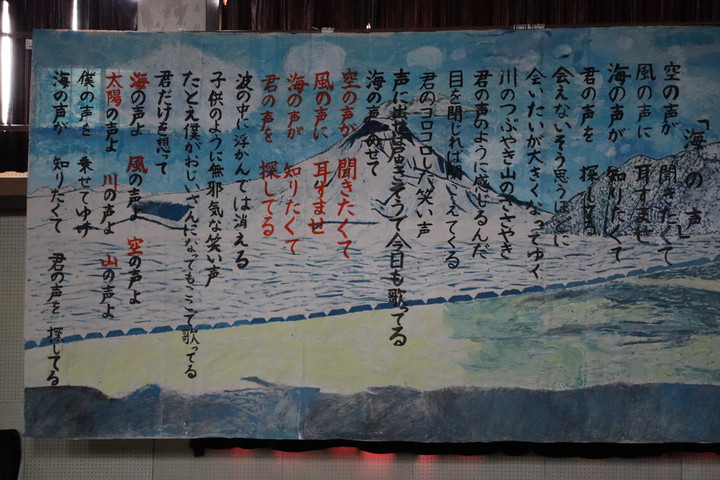 「海の声」
空の声が 聞きたくて
風の声に 耳すませ
海の声が 知りたくて
君の声を 探してる
会えないそう思うほどに
会いたいが大きくなってゆく
川のつぶやき山のささやき
君の声のように感じるんだ
目を閉じれば聞こえてくる
君のコロコロした笑い声
声に出せば届きそうで今日も歌ってる
海の声にのせて
空の声が 聞きたくて
風の声に 耳すませ
海の声が 知りたくて
君の声を 探してる
波の中に浮かんでは消える
子供のように無邪気な笑い声
たとえ僕がおじいさんになってもここで歌ってる
君だけを想って
海の声よ 風の声よ 空の声よ
太陽の声よ 川の声よ 山の声よ
僕の声を 乗せてゆけ
海の声が 知りたくて 君の声を 探してる